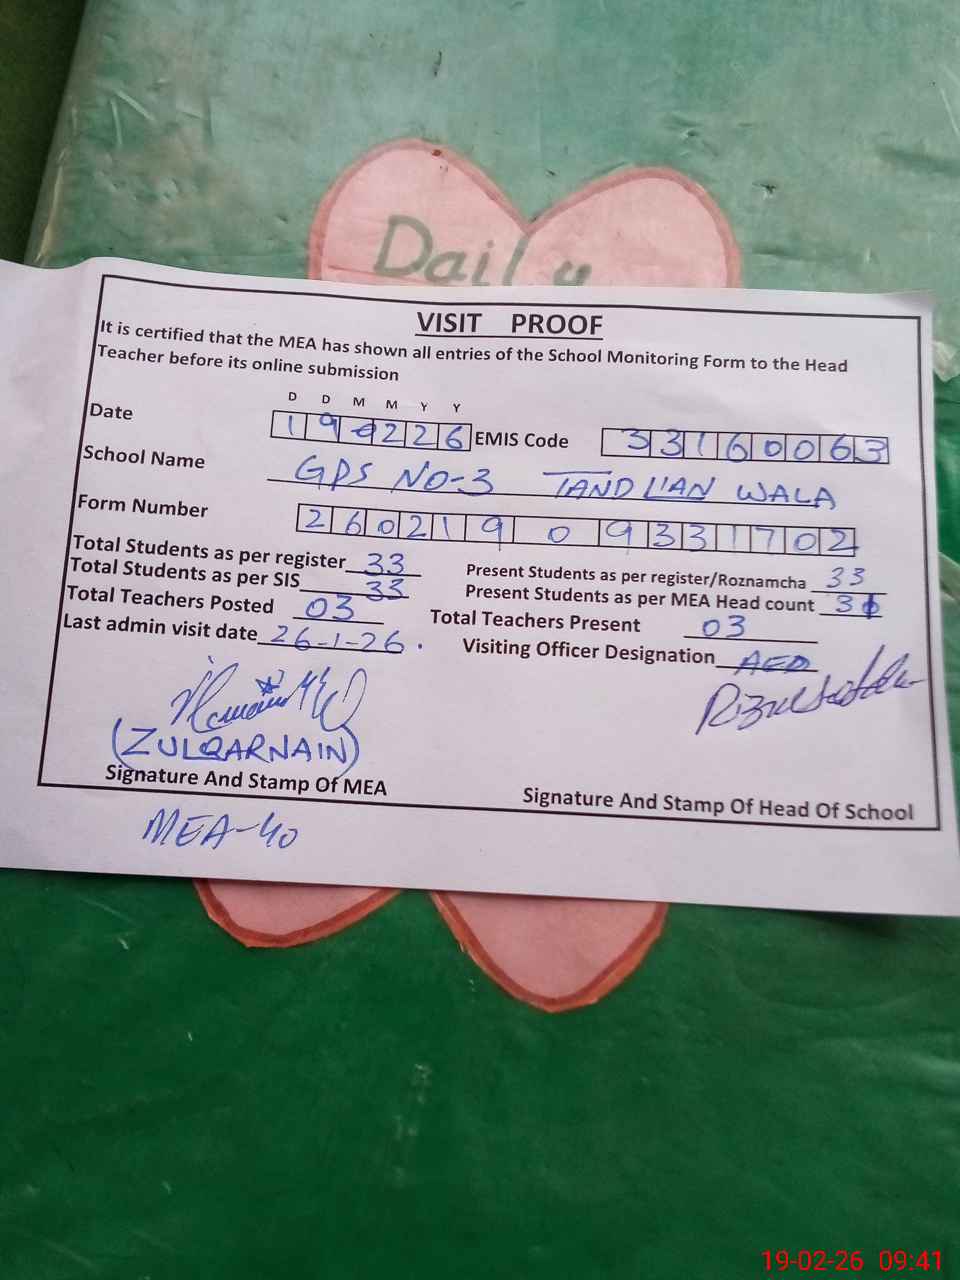 Daily
VISIT PROOF
It is certified that the MEA has shown all entries of the School Monitoring Form to the Head
Teacher before its online submission
D D M M Y Y
Date 190226 EMIS Code 33160063
School Name GPS NO-3 TANDLIAN WALA
Form Number 26021909331702
Total Students as per register 33 Present Students as per register/Roznamcha 33
Total Students as per SIS 33 Present Students as per MEA Head count
Total Teachers Posted 03 Total Teachers Present 03
Last admin visit date 26-1-26. Visiting Officer Designation AED
(ZULQARNAIN)
Signature And Stamp Of MEA Signature And Stamp Of Head Of School
MEA-40
19-02-26 09:41